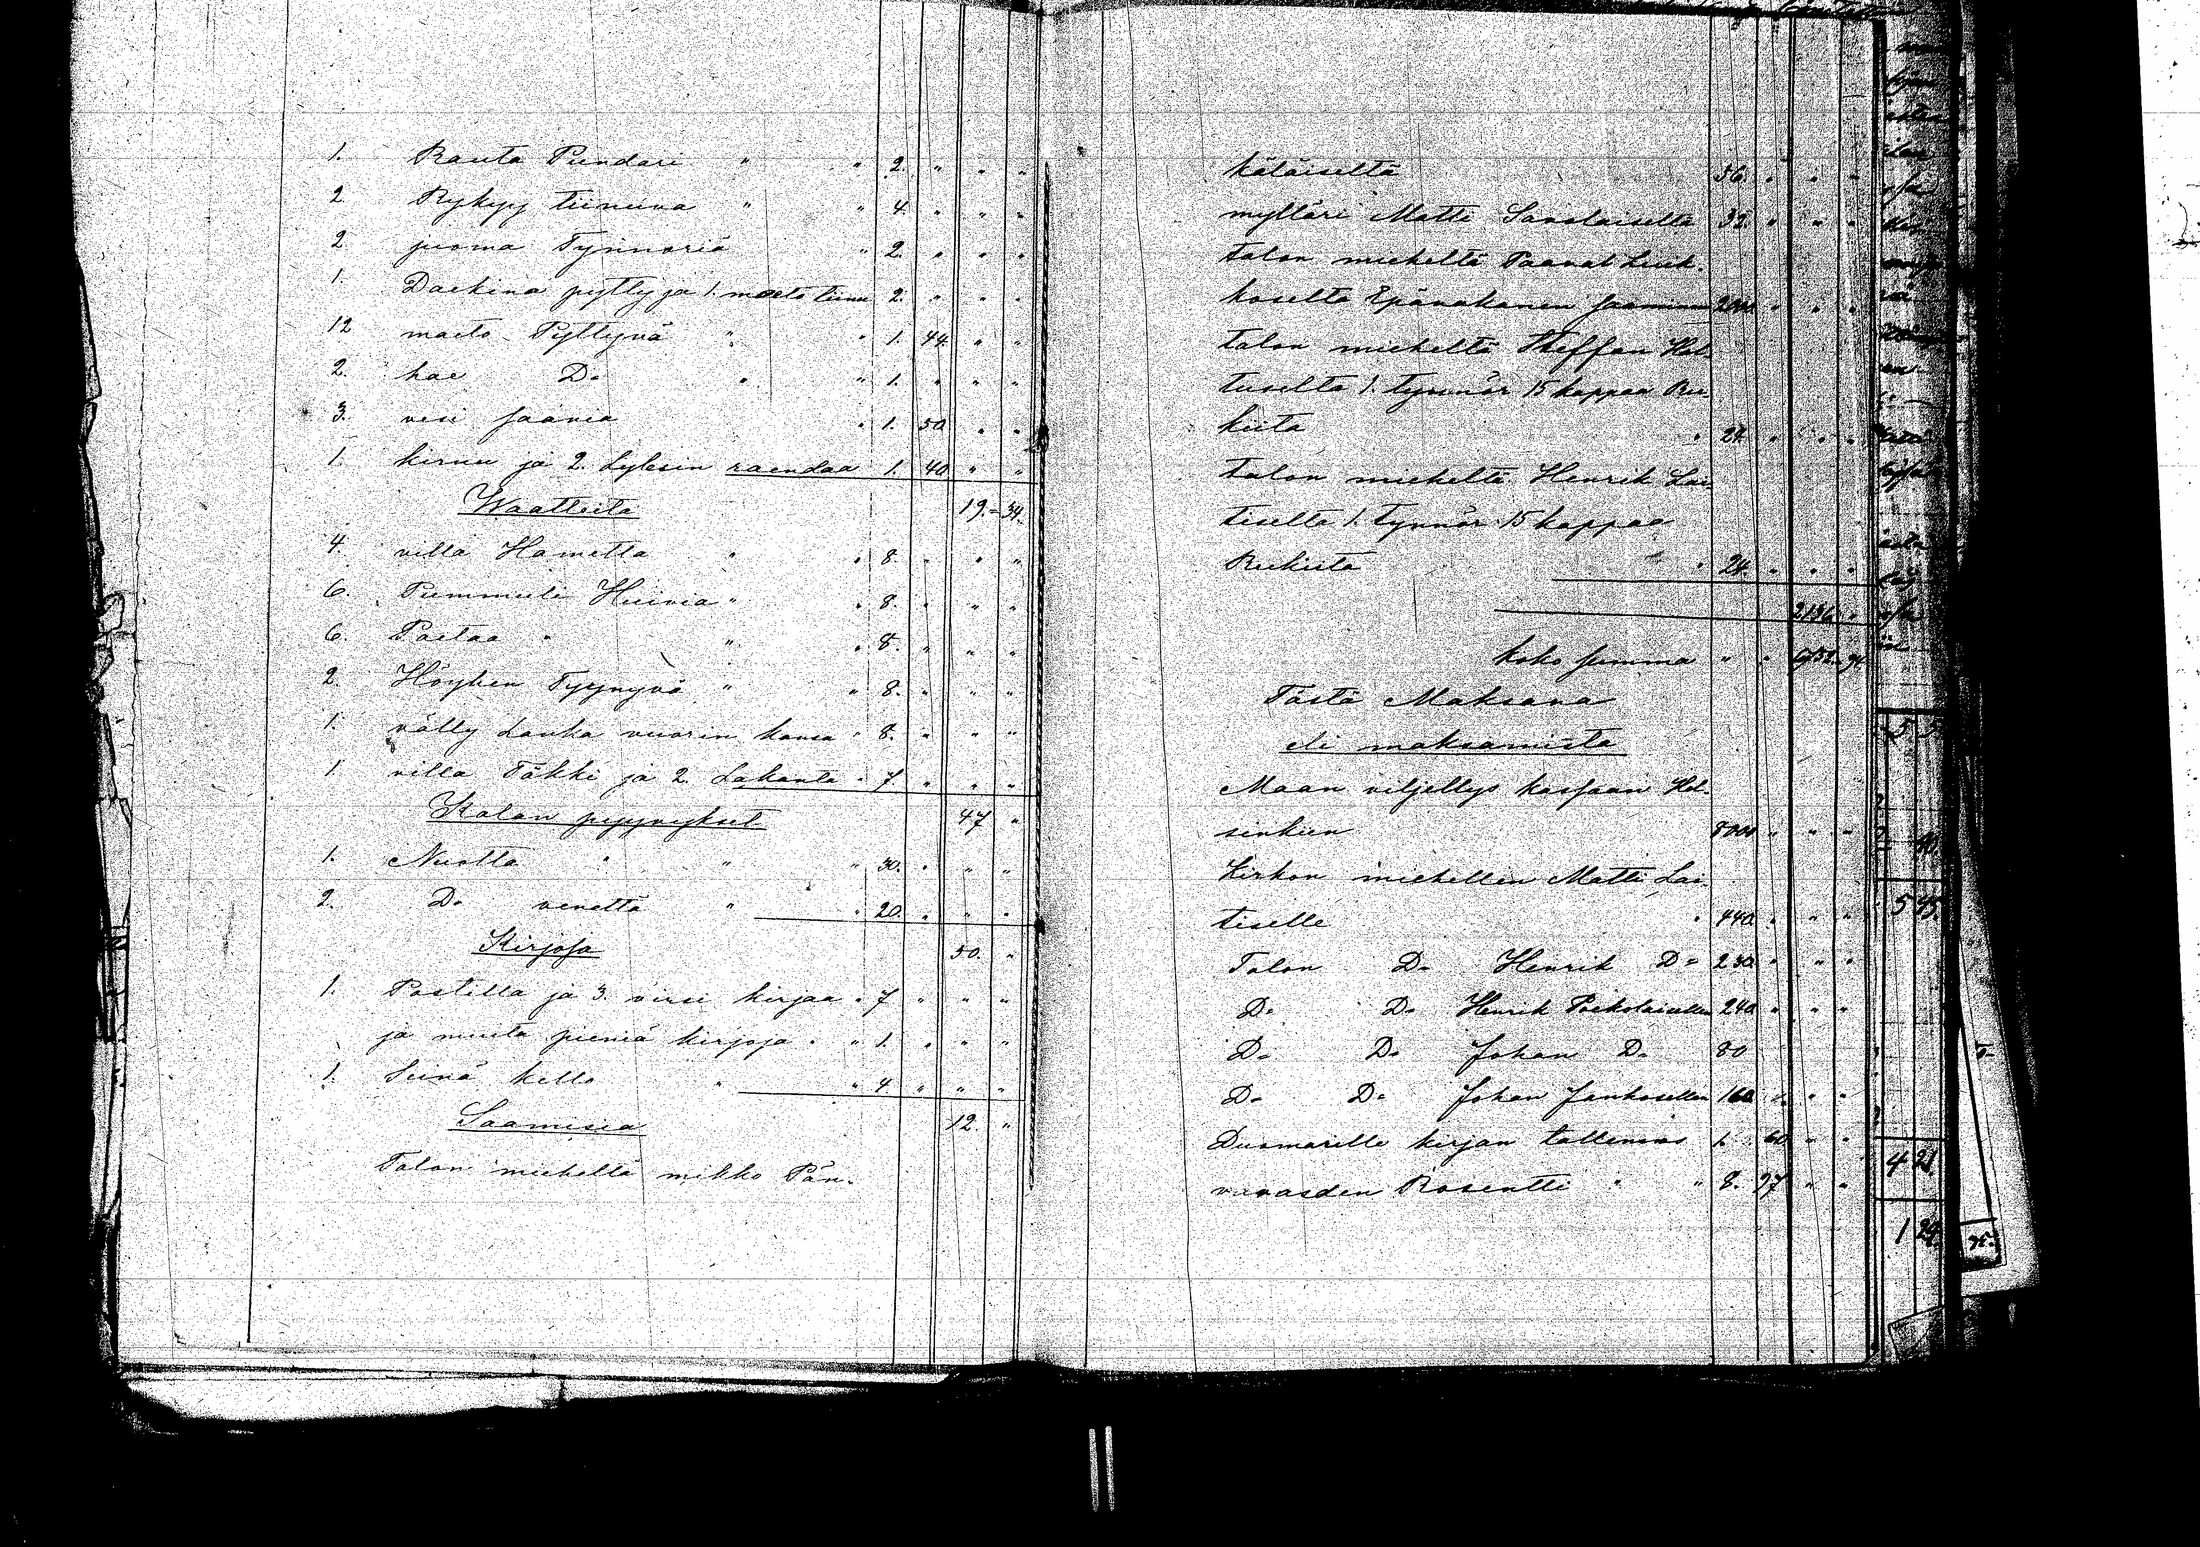 1. Rauta Pundari " " 2. " " "
2 Rykyy tiinuva " " 4. " " "
2 juoma Tynnöriä " 2. " " "
1. Daekina pytty ja 1. maeto tiinu 2. " " "
12 maeto Pyttyvä " " 1. 44. " "
2. kae D:o " " 1. " " "
3. vesi saavia " 1. 50 " "
1. kirnu ja 2. Lylysin raendaa 1. 40 " "
Waatteita 19.= 34.
4. villa Hametta " " 8. " " "
6. Pummuli Huivia " " 8. " " "
6. Paetaa " " " 8. " " "
2. Höyhen Tyynyvä " " 8. " " "
1. välly Lauka vuorin kansa " 8. " " "
1. villa Täkki ja 2. Lakanta " 7 " " "
Kalan pyyvykset 47 "
1. Nuotta " " " 30. " " "
2. D:o venettä " " 20. " " "
Kirjoja 50. "
1. Postilla ja 3. virsi kirjaa " 7 " " "
ja muita pieniä kirjoja " " 1. " " "
1. Seinä kello " " 4. " " "
Saamisia 12. "
Talon miehellä mikko Pän-
käläiseltä 56. " " "
mylläri Matti Savolaiselta 32. " " "
talon mieheltä Paavat Liuk-
koselta Epävakanen saaminen 2000 " " "
talon mieheltä Steffan Hal-
tuselta 1. Tynnär 15 kappaa Ru-
kiita " 24. " " "
talon mieheltä Henrik Lai-
tiselta 1. Tynnär 15 kappaa
Rukiita " 24. " " "
2136 "
koko summa " "
Tästä Maksava
eli maksamista
Maan viljellys kassaan Hel-
sinkiin 8000 " " "
Kirkon miehellen Matti Lai-
tiselle " 440. " " "
Talon D:o Henrik D:o 230 " " "
D:o D:o Henrik Paekolaisellen 240 " " "
D:o D:o Johan D:o 80
D:o D:o Johan Jankosellen 160 " " "
Duomarille kirjan tallennus 1. 60 " "
vaivasden Rosentti " " 8. 97 " "